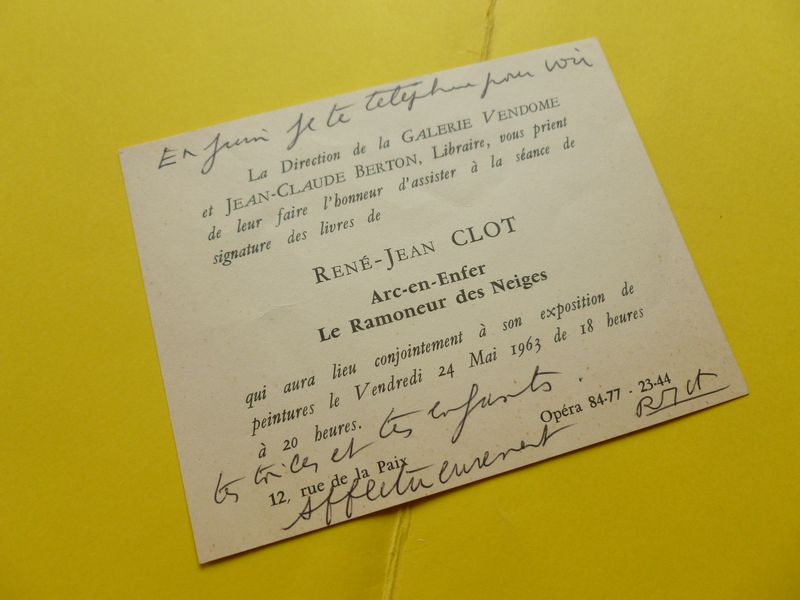 En juin je te téléphone pour voir
La Direction de la GALERIE VENDOME
et JEAN-CLAUDE BERTON, Libraire, vous prient
de leur faire l'honneur d'assister à la séance de
signature des livres de
RENÉ-JEAN CLOT
Arc-en-Enfer
Le Ramoneur des Neiges
qui aura lieu conjointement à son exposition de
peintures le Vendredi 24 Mai 1963 de 18 heures
à 20 heures.
et tes enfants.
12, rue de la Paix
Opéra 84-77 - 23-44
Affectueusement